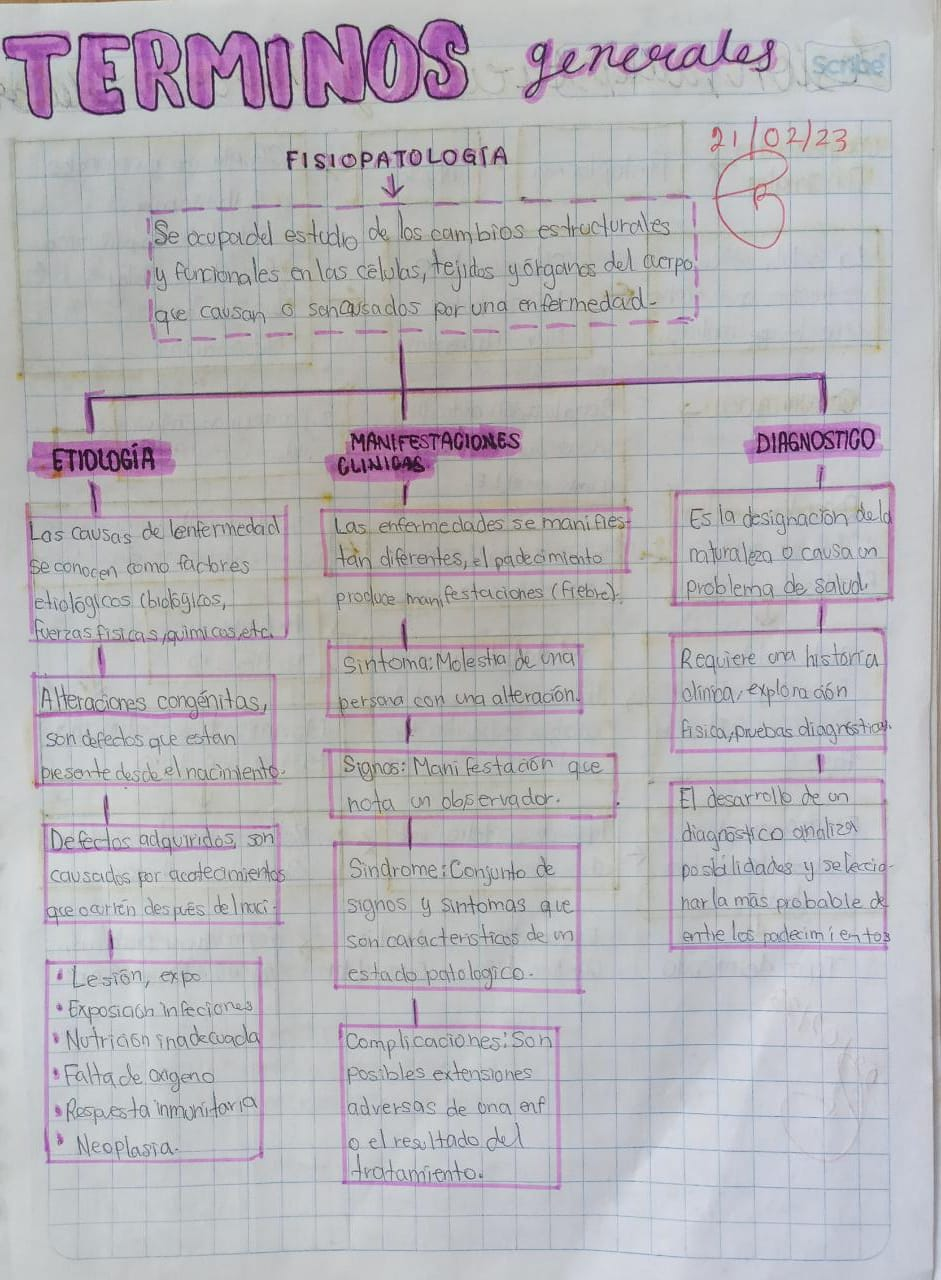 TERMINOS generales
Scribe
21/02/23
FISIOPATOLOGÍA
Se ocupa del estudio de los cambios estructurales
y funcionales en las células, tejidos y órganos del cuerpo
que causan o son causados por una enfermedad-
ETIOLOGÍA
Las causas de lenfermedad
se conocen como factores
etiológicos (biológicos,
fuerzas fisicas, quimicas, etc.
Alteraciones congénitas,
son defectos que estan
presente desde el nacimiento.
Defectos adquiridos, son
causados por acotecimientos
que ocurren después del naci-
• Lesión, expo
• Exposición infeciones
• Nutrición inadecuada
• Falta de oxigeno
• Respuesta inmunitaria
• Neoplasia.
MANIFESTACIONES
CLINICAS
Las enfermedades se manifies-
tan diferentes, el padecimiento
produce manifestaciones (fiebre).
Sintoma: Molestia de una
persona con una alteración.
Signos: Manifestación que
nota un observador.
Sindrome: Conjunto de
signos y sintomas que
son caracteristicos de un
estado patologico.
Complicaciones: Son
posibles extensiones
adversas de una enf
o el resultado del
tratamiento.
DIAGNOSTICO
Es la designación de la
naturaleza o causa un
problema de salud.
Requiere una historia
clinica, exploración
fisica, pruebas diagnósticas.
El desarrollo de un
diagnóstico analiza
posibilidades y seleccio-
nar la más probable de
entre los padecimientos